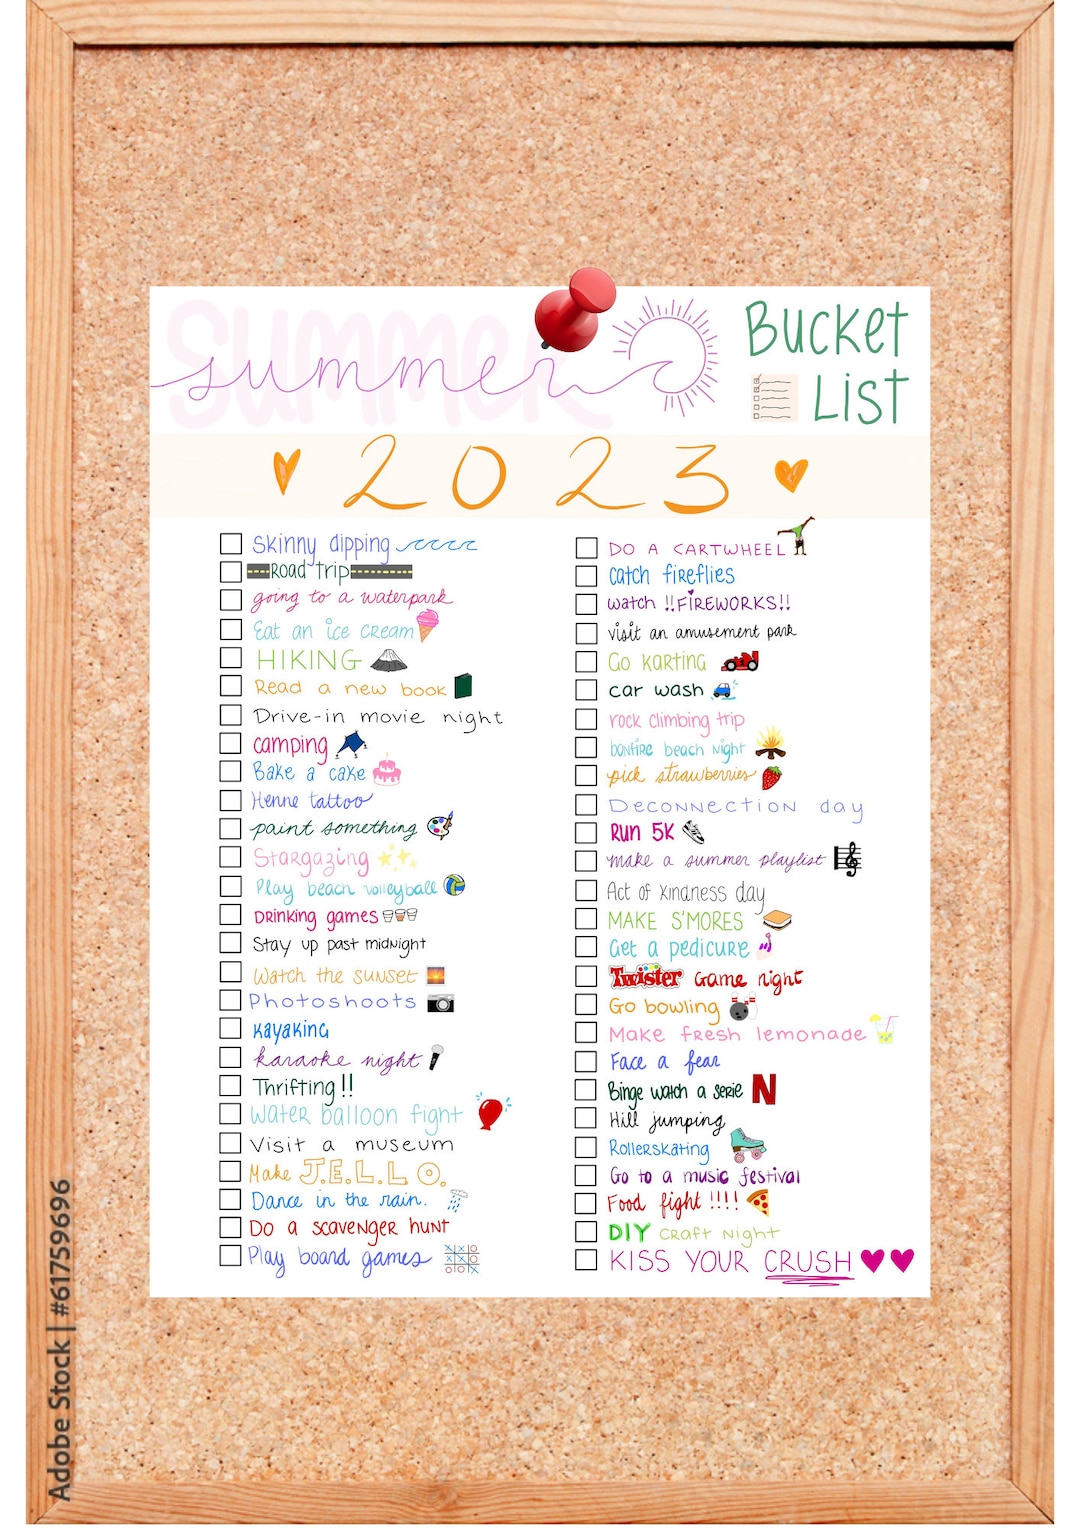 summer
summer
Bucket
List
2023
Skinny dipping
Road trip
going to a waterpark
Eat an ice cream
HIKING
Read a new book
Drive-in movie night
camping
Bake a cake
Henne tattoo
paint something
Stargazing
Play beach volleyball
Drinking games
Stay up past midnight
Watch the sunset
Photoshoots
Kayaking
karaoke night
Thrifting!!
Water balloon fight
Visit a museum
Make J.E.L.L.O.
Dance in the rain.
Do a scavenger hunt
Play board games
DO A CARTWHEEL
catch fireflies
watch !!FIREWORKS!!
visit an amusement park
Go karting
car wash
rock climbing trip
bonfire beach night
pick strawberries
Deconnection day
Run 5K
make a summer playlist
Act of kindness day
MAKE S'MORES
Get a pedicure
Twister Game night
Go bowling
Make fresh lemonade
Face a fear
Binge watch a serie N
Hill jumping
Rollerskating
Go to a music festival
Food fight !!!!
DIY craft night
KISS YOUR CRUSH
Adobe Stock | #61759696